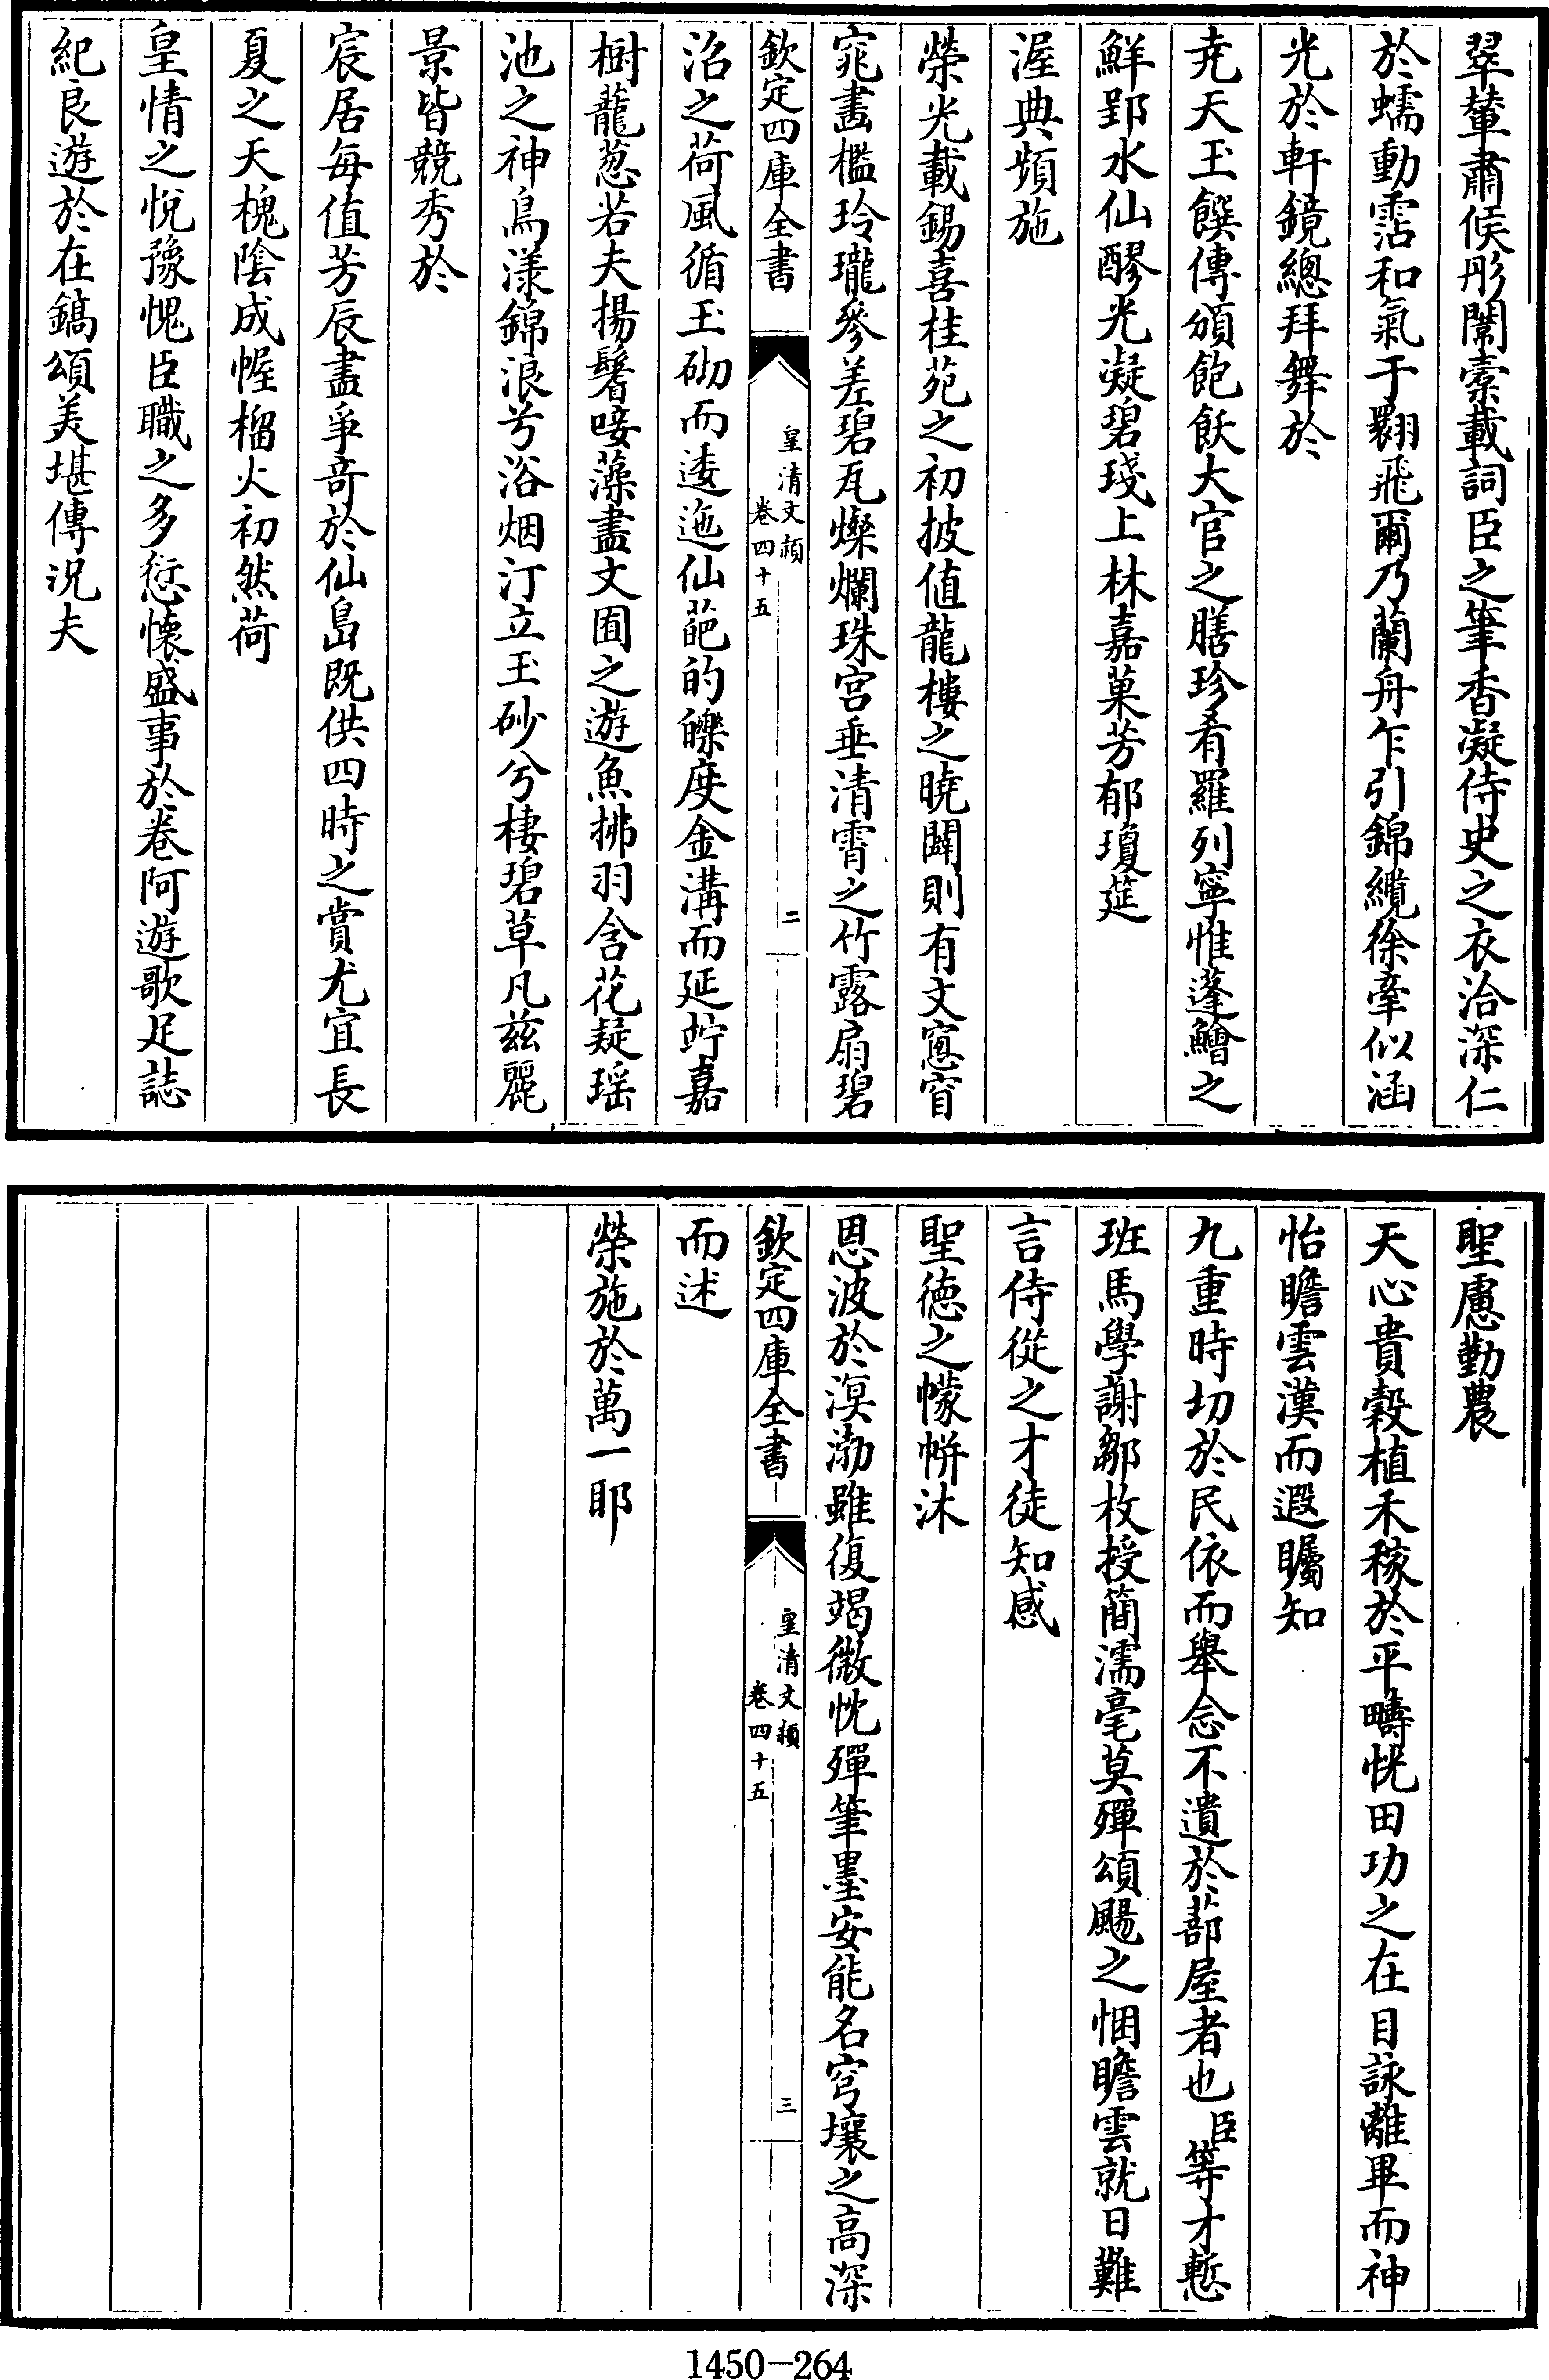 翠輦肅候彤闈橐載詞臣之筆香凝侍史之衣洽深仁
於蠕動霑和氣于翾飛爾乃蘭舟乍引錦纜徐牽似涵
光於軒鏡總拜舞於
尭天玉饌傳頒飽飫大官之膳珍肴羅列寧惟蓬鱠之
鮮郢水仙醪光凝碧琖上林嘉菓芳郁瓊筵
渥典頻施
榮光載錫喜桂苑之初披值龍樓之曉闢則有文窻窅
窕畫檻玲瓏參差碧瓦燦爛珠宫垂清霄之竹露扇碧
欽定四庫全書
皇清文穎
卷四十五
二
沼之荷風循玉砌而逶迤仙葩的皪度金溝而延竚嘉
樹蘢葱若夫揚鬐唼藻盡文囿之遊魚拂羽含花疑瑶
池之神鳥漾錦浪兮浴烟汀立玉砂兮棲碧草凡兹麗
景皆競秀於
宸居每值芳辰盡爭竒於仙島既供四時之賞尤宜長
夏之天槐陰成幄榴火初然荷
皇情之悅豫愧臣職之多愆懐盛事於卷阿遊歌足誌
紀良遊於在鎬頌美堪傳況夫
聖慮勤農
天心貴穀植禾稼於平疇恍田功之在目詠離畢而神
怡瞻雲漢而遐矚知
九重時切於民依而舉念不遺於蔀屋者也臣等才慙
班馬學謝鄒枚授簡濡毫莫殫頌颺之悃瞻雲就日難
言侍從之才徒知感
聖徳之幪帡沐
恩波於溟渤雖復竭微忱殫筆墨安能名穹壤之高深
欽定四庫全書
皇清文穎
卷四十五
三
而述
榮施於萬一耶
1450-264